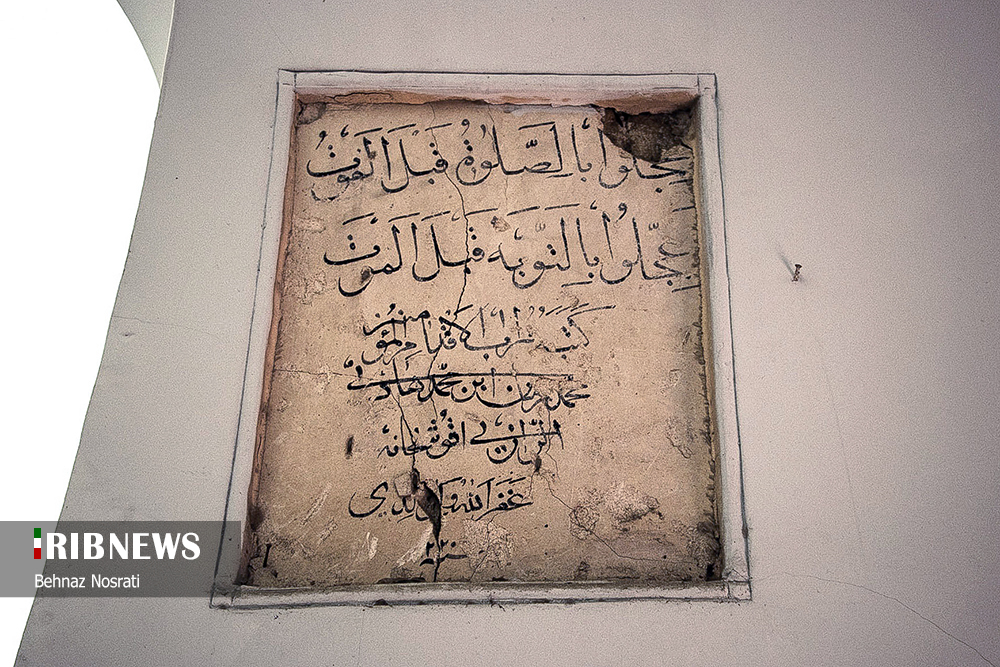 عَجِّلُوا بِالصَّلٰوةِ قَبْلَ الْفَوْتِ
عَجِّلُوا بِالتَّوْبَة قَبْلَ الْمَوْت
كتبه تراب الاقدام المؤمنین
محمد ابن محمد هادی
غفر الله والدی
RIBNEWS
Behnaz Nosrati